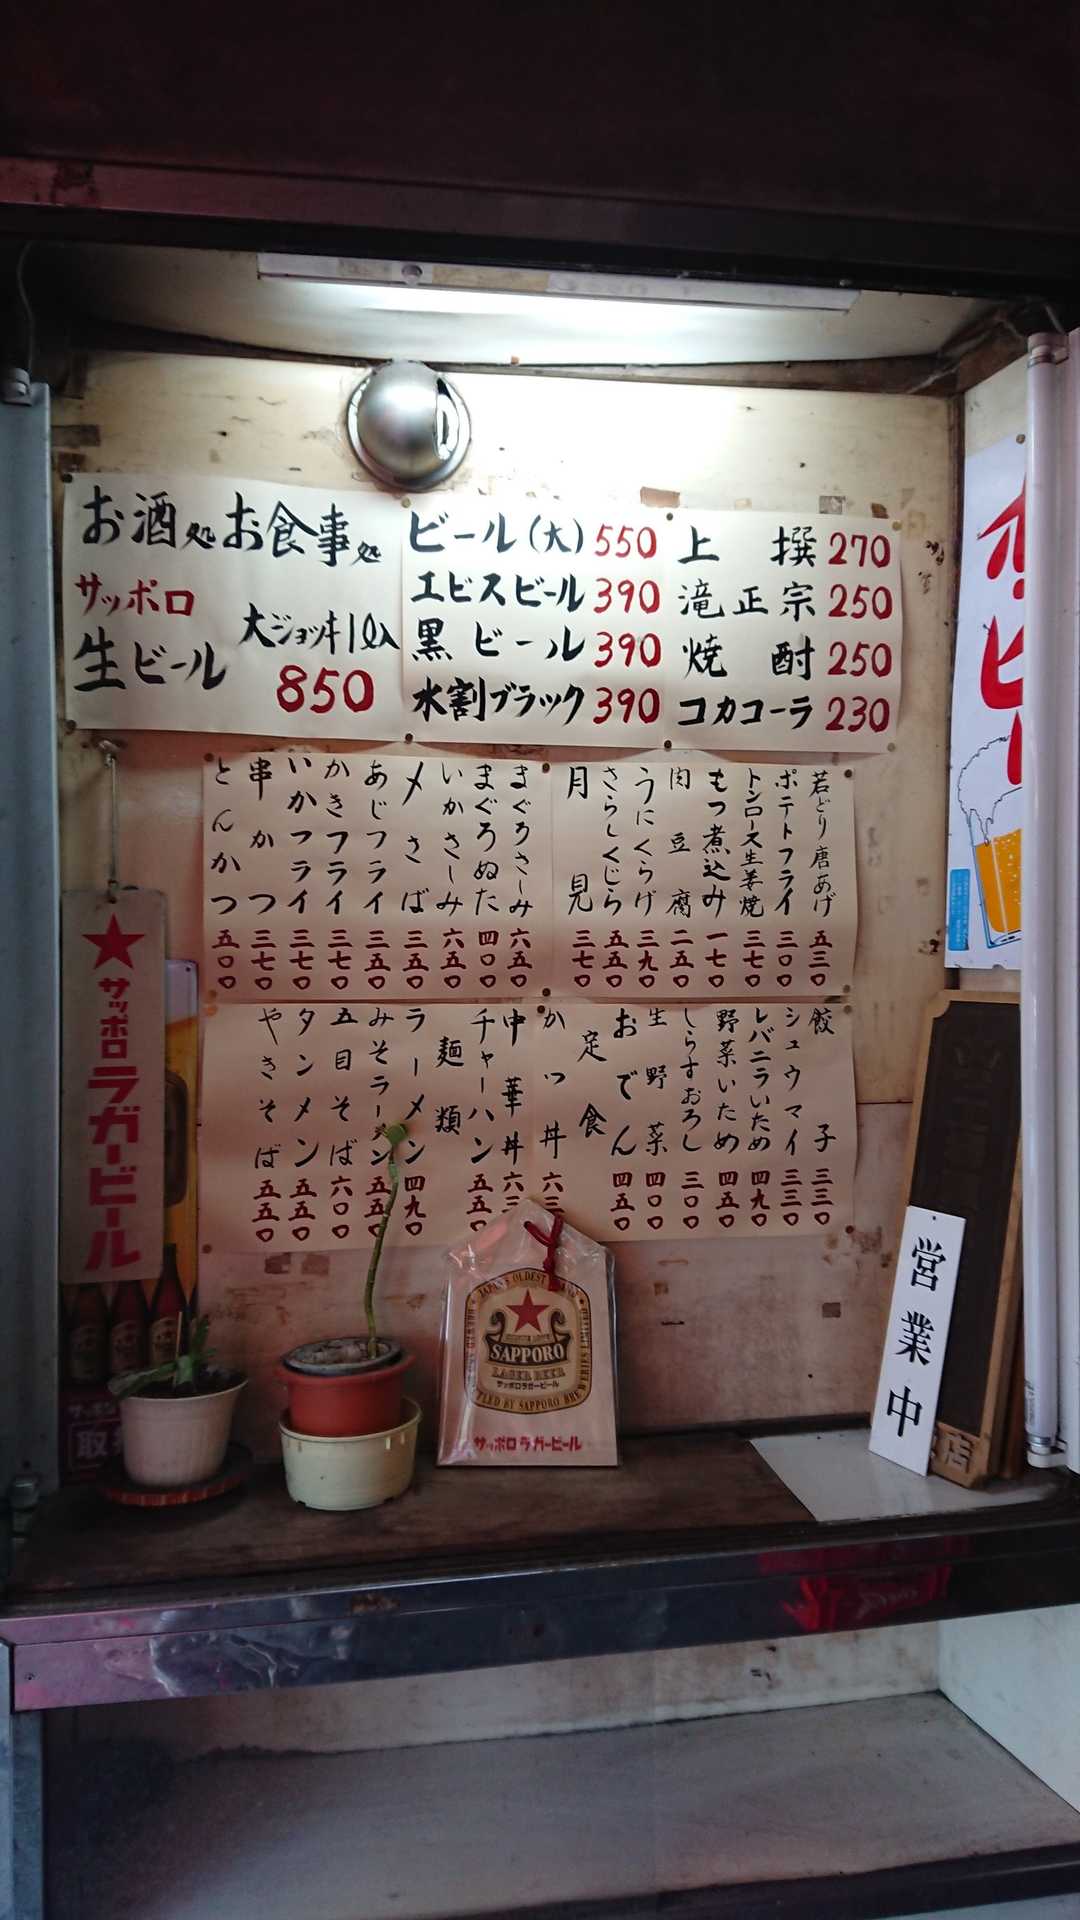 お酒処お食事処
サッポロ
生ビール
大ジョッキ1ℓ入
850
ビール(大) 550
エビスビール 390
黒ビール 390
水割ブラック 390
上撰 270
滝正宗 250
焼酎 250
コカコーラ 230
若どり唐あげ 五三〇
ポテトフライ 三〇〇
トンロース生姜焼 三七〇
もつ煮込み 一七〇
肉豆腐 二五〇
うにくらげ 三九〇
さらしくじら 五五〇
月見 三七〇
まぐろさしみ 六五〇
まぐろぬた 四〇〇
いかさしみ 六五〇
〆さば 三五〇
あじフライ 三五〇
かきフライ 三七〇
いかフライ 三七〇
串かつ 三七〇
とんかつ 五〇〇
餃子 三三〇
シュウマイ 三三〇
レバニラいため 四九〇
野菜いため 四五〇
しらすおろし 三〇〇
生野菜 四〇〇
おでん 四五〇
定食
かつ丼 六三
中華丼 六三
チャーハン 五五〇
麺類
ラーメン 四九〇
みそラーメン 五五〇
五目そば 六〇〇
タンメン 五五〇
やきそば 五五〇
サッポロラガービール
JAPAN'S OLDEST
SAPPORO
LAGER BEER
サッポロラガービール
サッポロラガービール
営業中
店